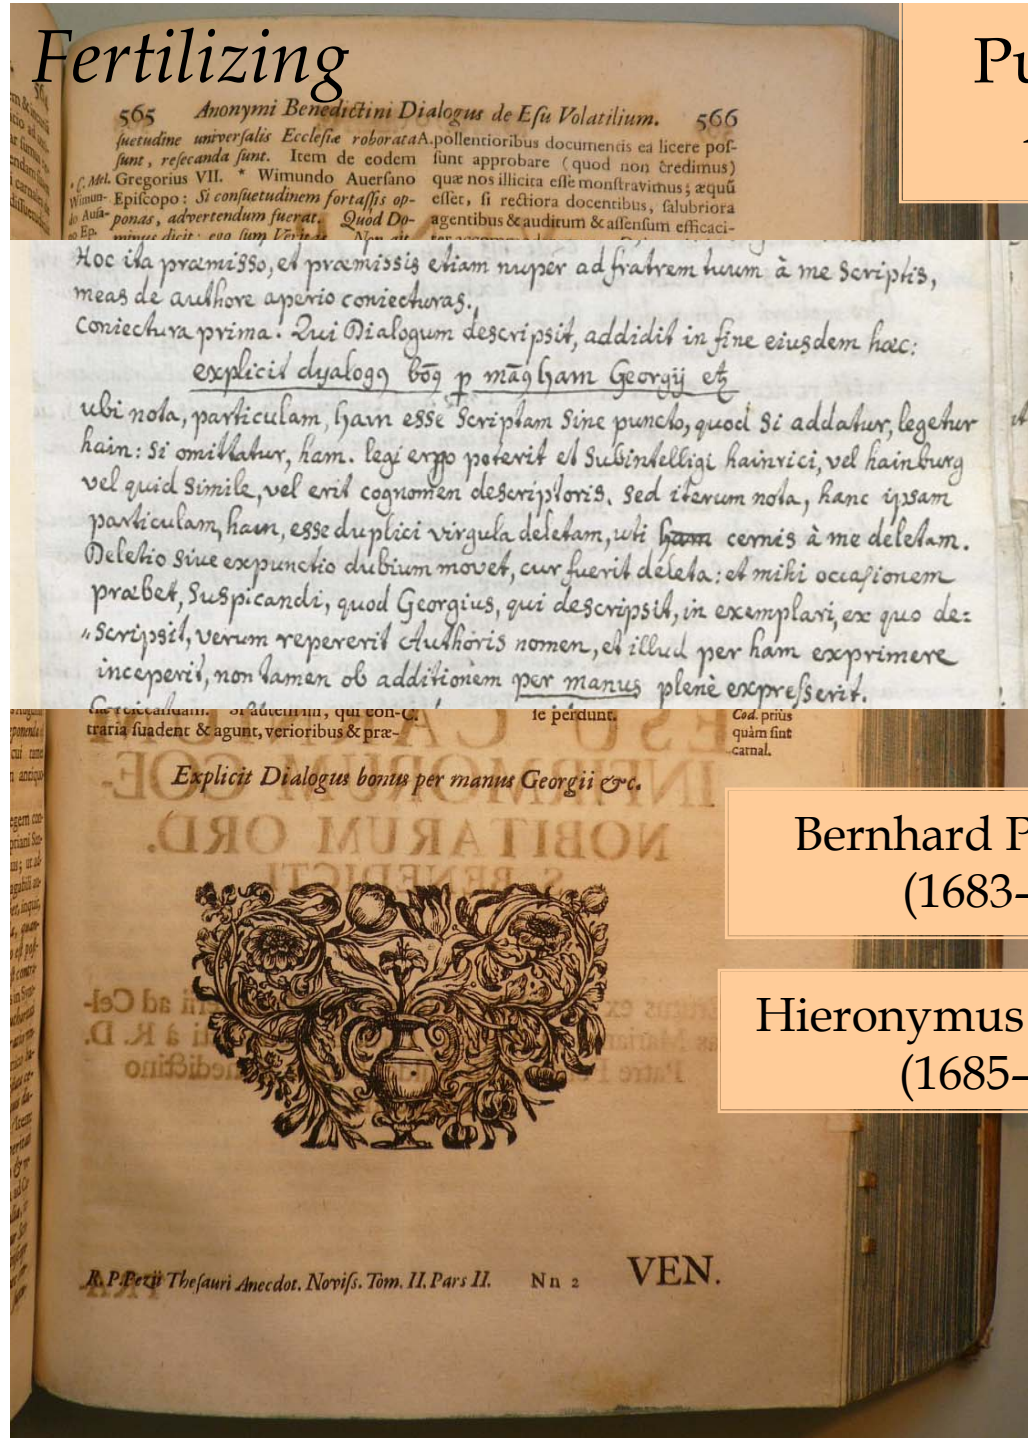 Fertilizing
Pu
565 Anonymi Benedictini Dialogus de Esu Volatilium. 566
suetudine universalis Ecclesiæ roborata
sunt, resecanda sunt. Item de eodem
Gregorius VII. * Wimundo Aversano
Episcopo: Si consuetudinem fortassis op-
ponas, advertendum fuerat. Quod Do-
minus dicit: ego sum Veritas. Non ait
* C. Mel.
Wimun-
do Ausa-
no Ep.
A. pollentioribus documentis ea licere pos-
sunt approbare (quod non credimus)
quæ nos illicita esse monstravimus; æquũ
esset, si rectiora docentibus, salubriora
agentibus & auditum & assensum efficaci-
Hoc ita præmisso, et præmissis etiam nuper ad fratrem tuum à me scriptis,
meas de authore aperio coniecturas.
Coniectura prima. Qui Dialogum descripsit, addidit in fine eiusdem hæc:
explicit dyalogꝯ boꝯ ꝑ māꝯ ham Georgij etꝫ
ubi nota, particulam, ham esse scriptam sine puncto, quod si addatur, legetur
hain: si omittatur, ham. legi ergo poterit et subintelligi hainrici, vel hainburg
vel quid simile, vel erit cognomen descriptoris. Sed iterum nota, hanc ipsam
particulam, ham, esse duplici virgula deletam, uti ham cernis à me deletam.
Deletio sive expunctio dubium movet, cur fuerit deleta: et mihi occasionem
præbet, suspicandi, quod Georgius, qui descripsit, in exemplari, ex quo de=
"scripsit, verum repererit Authoris nomen, et illud per ham exprimere
inceperit, non tamen ob additionem per manus plenè expresserit.
traria suadent & agunt, verioribus & præ-
C.
se perdunt.
Cod. prius
quàm sint
carnal.
Explicit Dialogus bonus per manus Georgii &c.
Bernhard P
(1683-
Hieronymus
(1685-
R. P. Pezii Thesauri Anecdot. Noviss. Tom. II. Pars II. Nn 2 VEN.